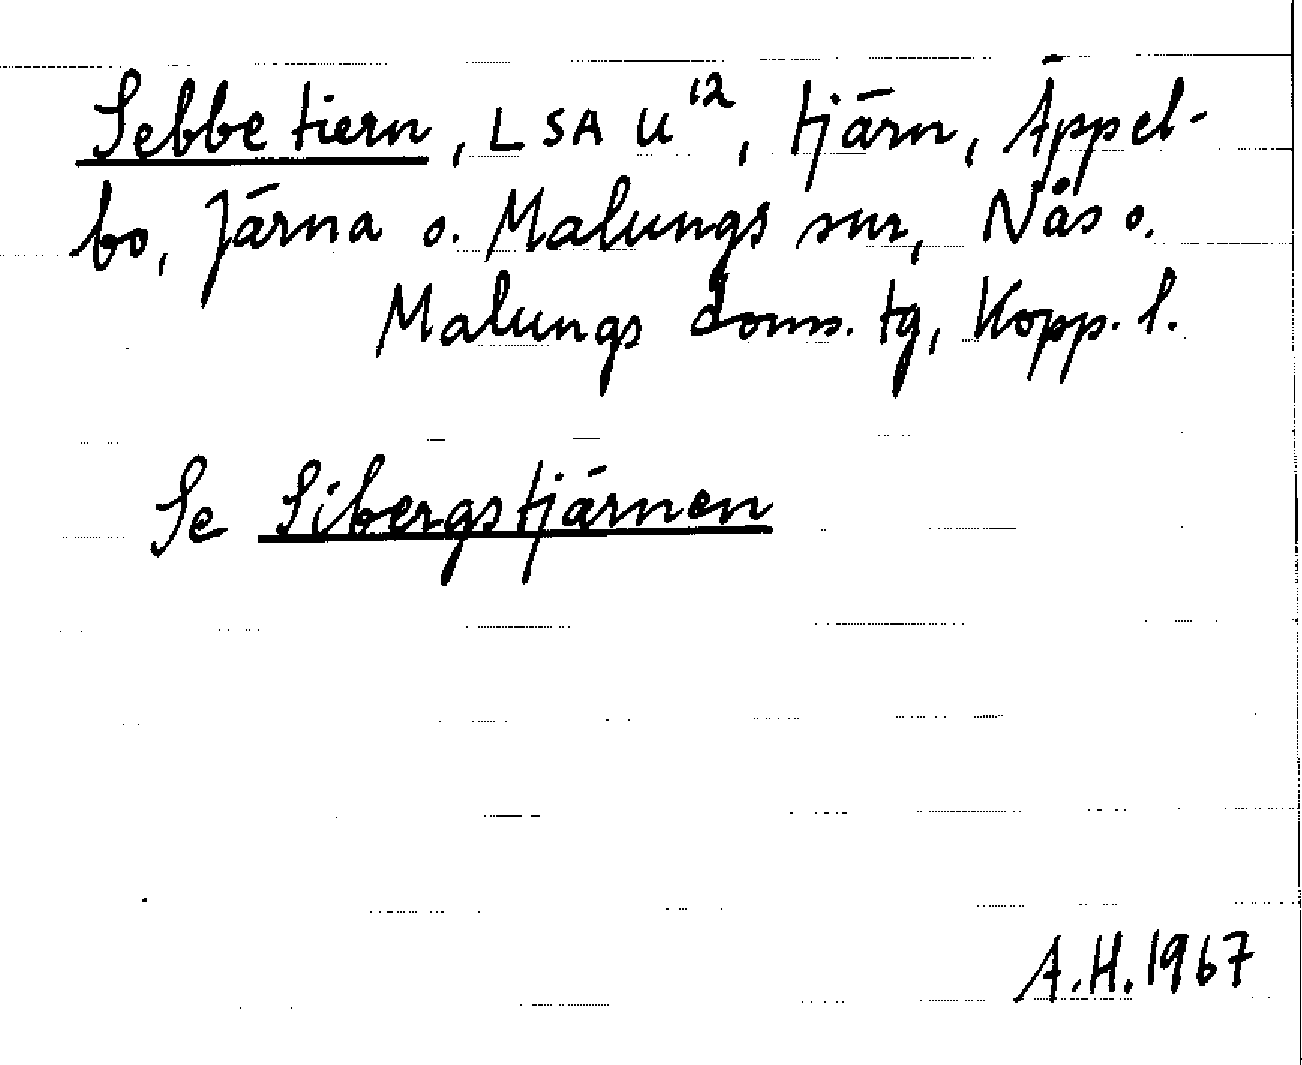 Sebbe tiern, LSA U¹², tjärn, Äppel-
bo, Järna o. Malungs snr, Nås o.
Malungs doms. tg, Kopp. l.
Se Sibergstjärnen
A.H. 1967